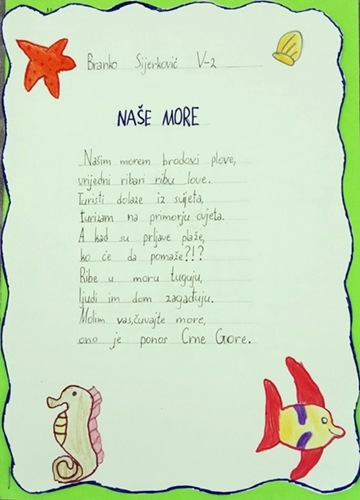 Branko Sijerković V-2
NAŠE MORE
Našim morem brodovi plove,
vrijedni ribari ribu love.
Turisti dolaze iz svijeta,
turizam na primorju cvjeta.
A kad su prljave plaže,
ko će da pomaže?!?
Ribe u moru tuguju,
ljudi im dom zagađuju.
Molim vas,čuvajte more,
ono je ponos Crne Gore.